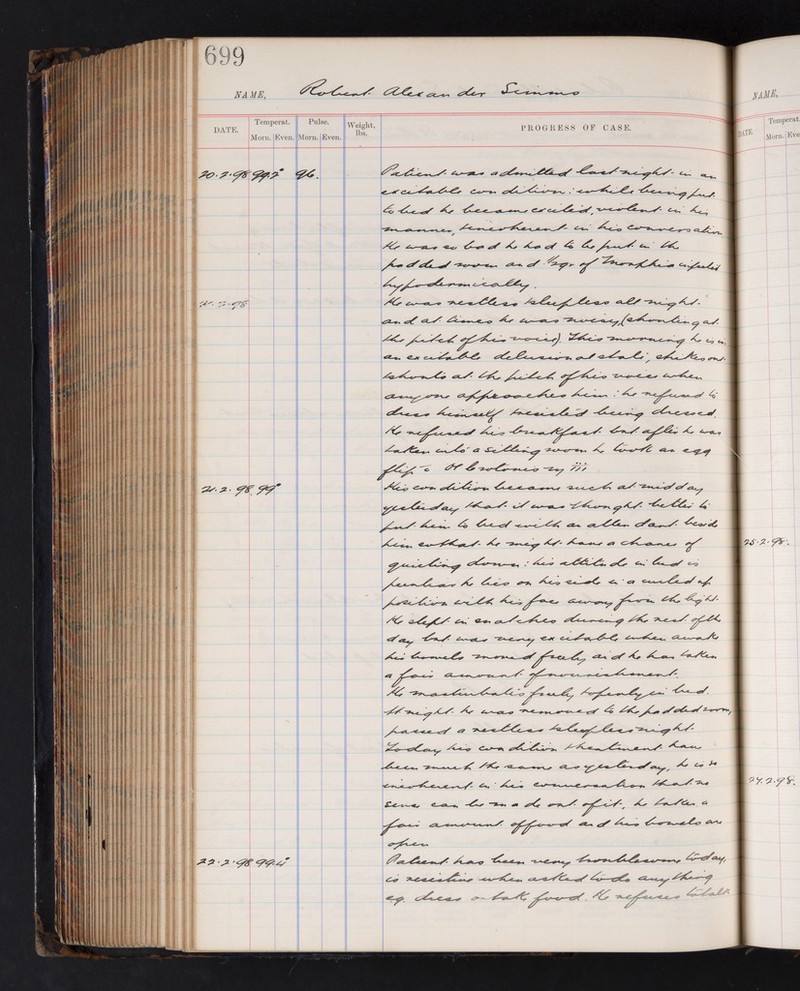 699
NAME, Robert Alexander Simms
DATE. Temperat. Pulse. Weight, lbs. PROGRESS OF CASE.
Morn. Even. Morn. Even.
20.2.98 99.2° 96. Patient was admitted last night in an
excitable condition: while being put
to bed he became excited, violent in his
manner, & incoherent in his conversation
He was so bad he had to be put in the
padded room and gr. of Morphia injected
hypodermically.
21.2.98 He was restless & sleepless all night
and at times he was noisy, (shouting at
the pitch of his voice). This morning he is in
an excitable delusional state, strikes out
& shouts at the pitch of his voice when
anyone approaches him: he refused to
dress himself & resisted being dressed.
He refused his breakfast but after he was
taken into a sitting room he took an egg
flip c̄ Ol Crotonis
21.2.98 99° His condition became such at midday
yesterday that it was thought better to
put him to bed with an attendant beside
him so that he might have a chance of
quieting down: his attitude in bed is
peculiar he lies on his side in a curled up
position with his face away from the light.
He slept in snatches during the rest of the
day but was very excitable when awake
his bowels moved freely and he has taken
a fair amount of nourishment.
He masturbates freely & openly in bed.
At night he was removed to the padded room,
passed a restless & sleepless night.
Today his condition & treatment have
been much the same as yesterday, he is so
incoherent in his conversation that no
sense can be made out of it, he takes a
fair amount of food and his bowels are
open
22.2.98 99.4° Patient has been very troublesome today,
is resistive when asked to do anything
eg. dress or take food. He refuses to talk
NAME,
DATE. Temperat.
Morn. Eve
25.2.98.
27.2.98.